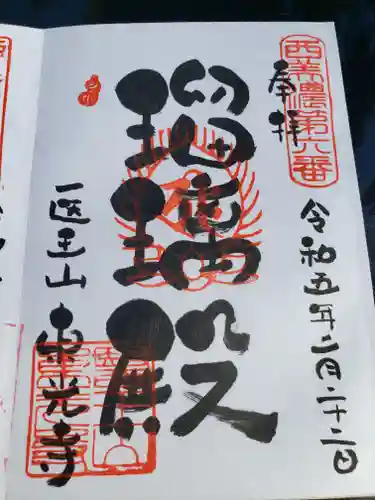 西美濃第六番
奉拝
令和五年二月二十二日
瑠璃殿
医王山
東光寺